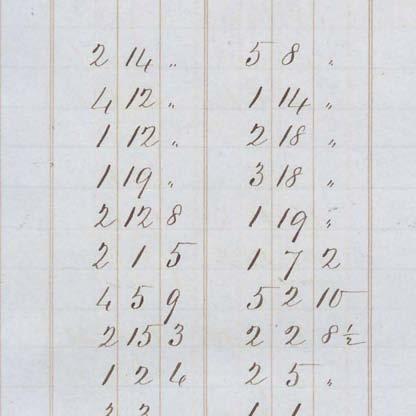 2 14 " 5 8 "
4 12 " 1 14 "
1 12 " 2 18 "
1 19 " 3 18 "
2 12 8 1 19 "
2 1 5 1 7 2
4 5 9 5 2 10
2 15 3 2 2 8 ½
1 2 6 2 5 "